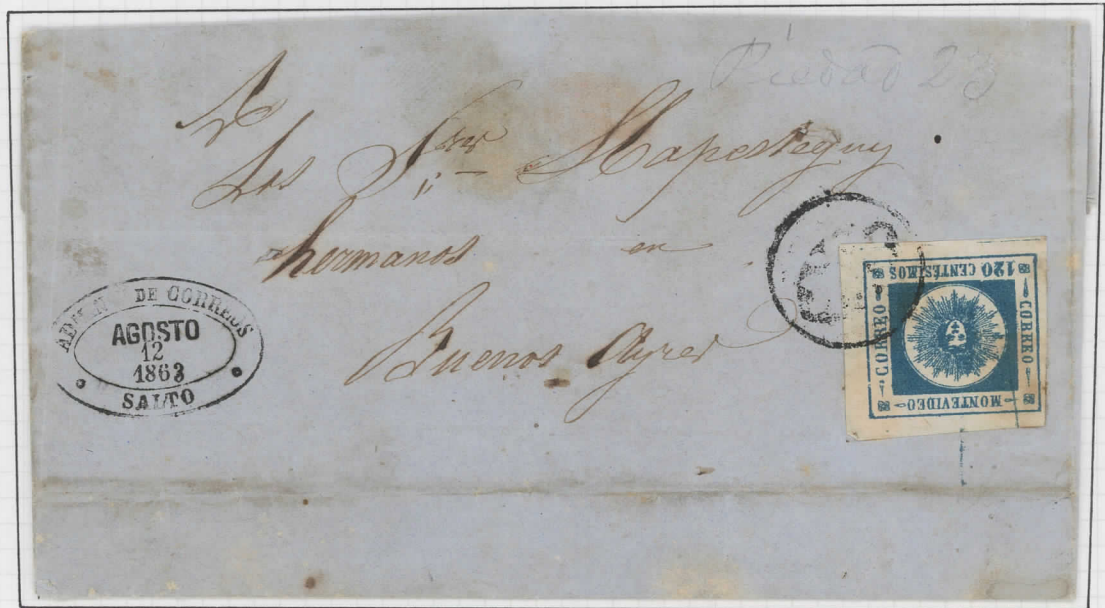 Piedad 23
A
Los Sres Llapesteguy
hermanos en
Buenos Ayres
ADMON DE CORREOS
AGOSTO
12
1863
SALTO
120 CENTÉSIMOS
CORREO
CORREO
MONTEVIDEO